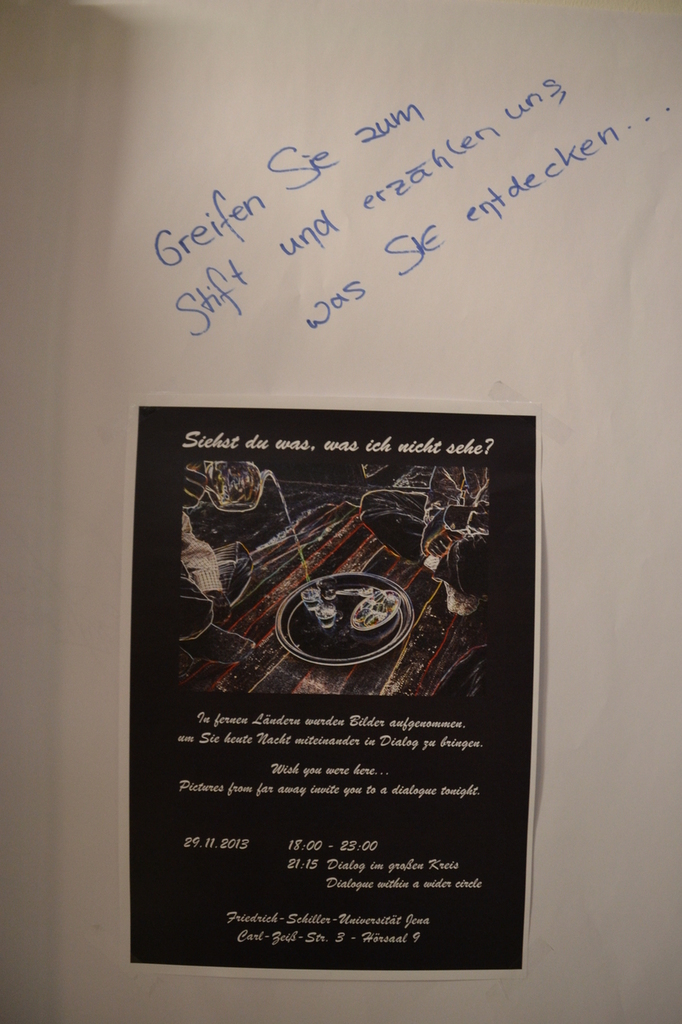 Greifen Sie zum
Stift und erzählen uns,
was SIE entdecken...
Siehst du was, was ich nicht sehe?
In fernen Ländern wurden Bilder aufgenommen,
um Sie heute Nacht miteinander in Dialog zu bringen.
Wish you were here...
Pictures from far away invite you to a dialogue tonight.
29.11.2013 18:00 - 23:00
21:15 Dialog im großen Kreis
Dialogue within a wider circle
Friedrich-Schiller-Universität Jena
Carl-Zeiß-Str. 3 - Hörsaal 9